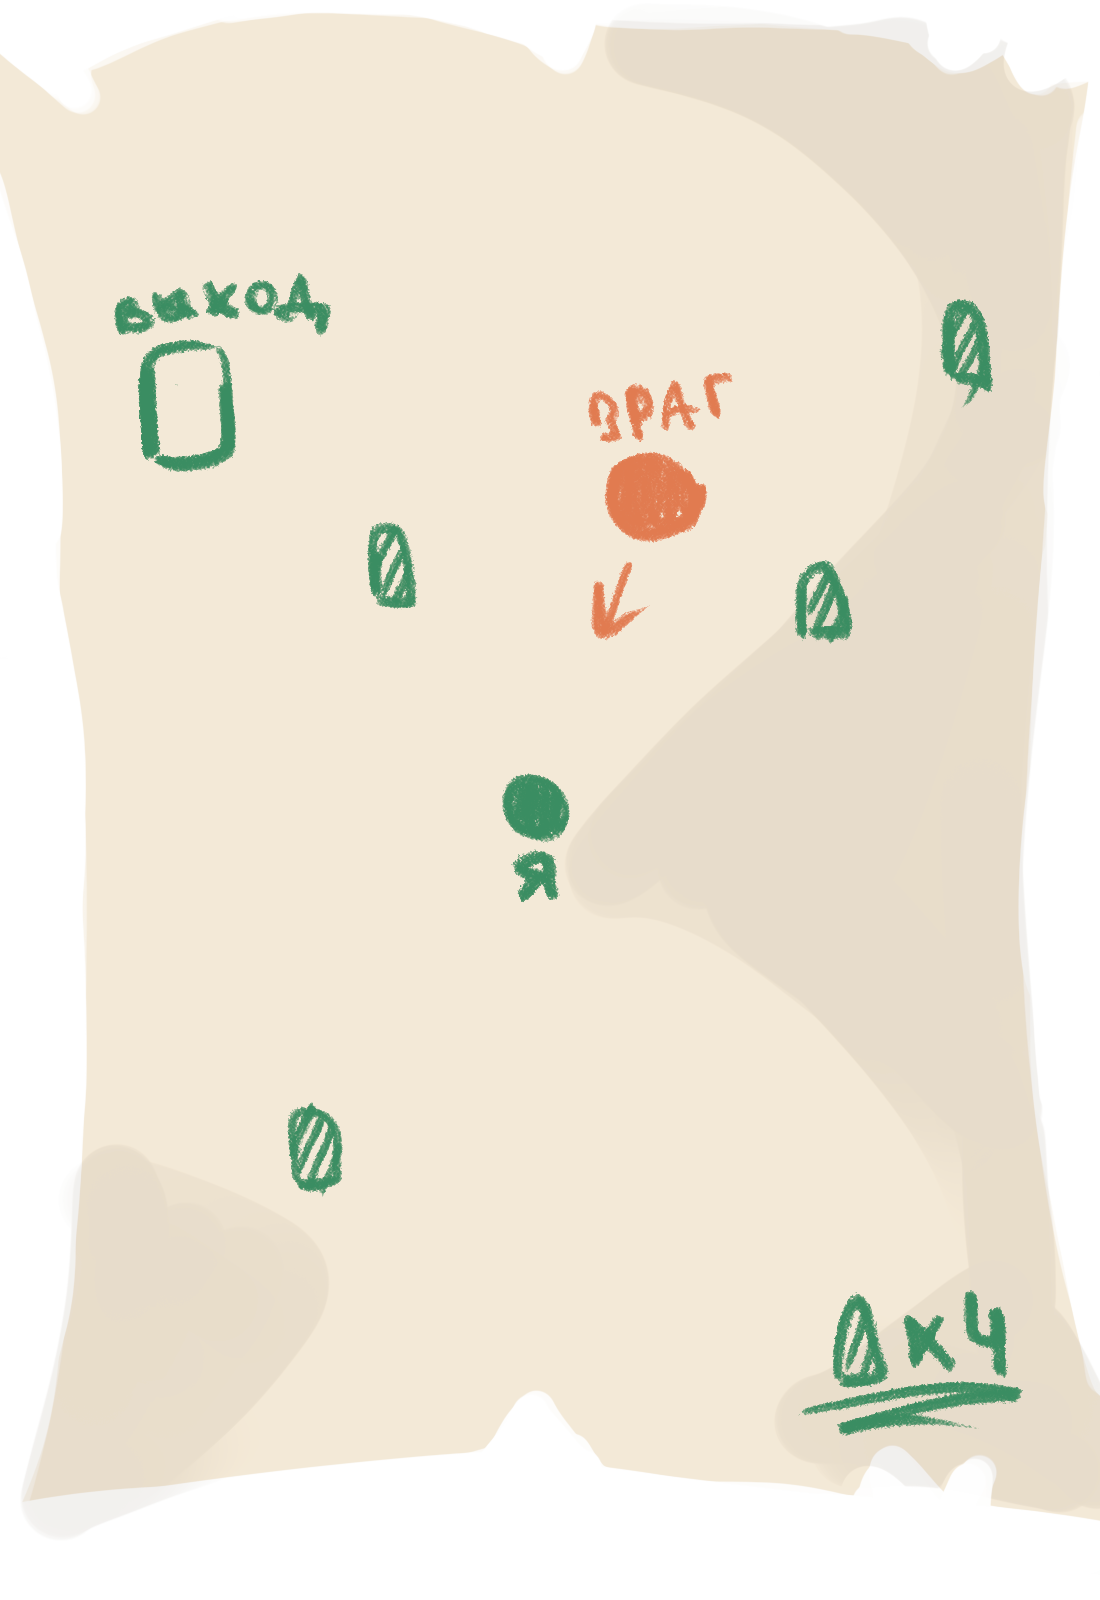 выход
враг
я
x4